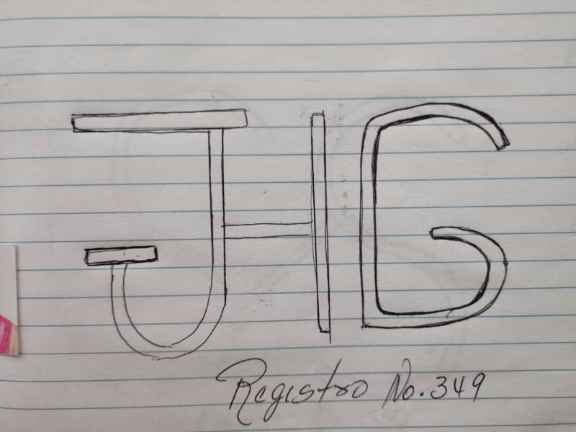 JHG
Registro No. 349